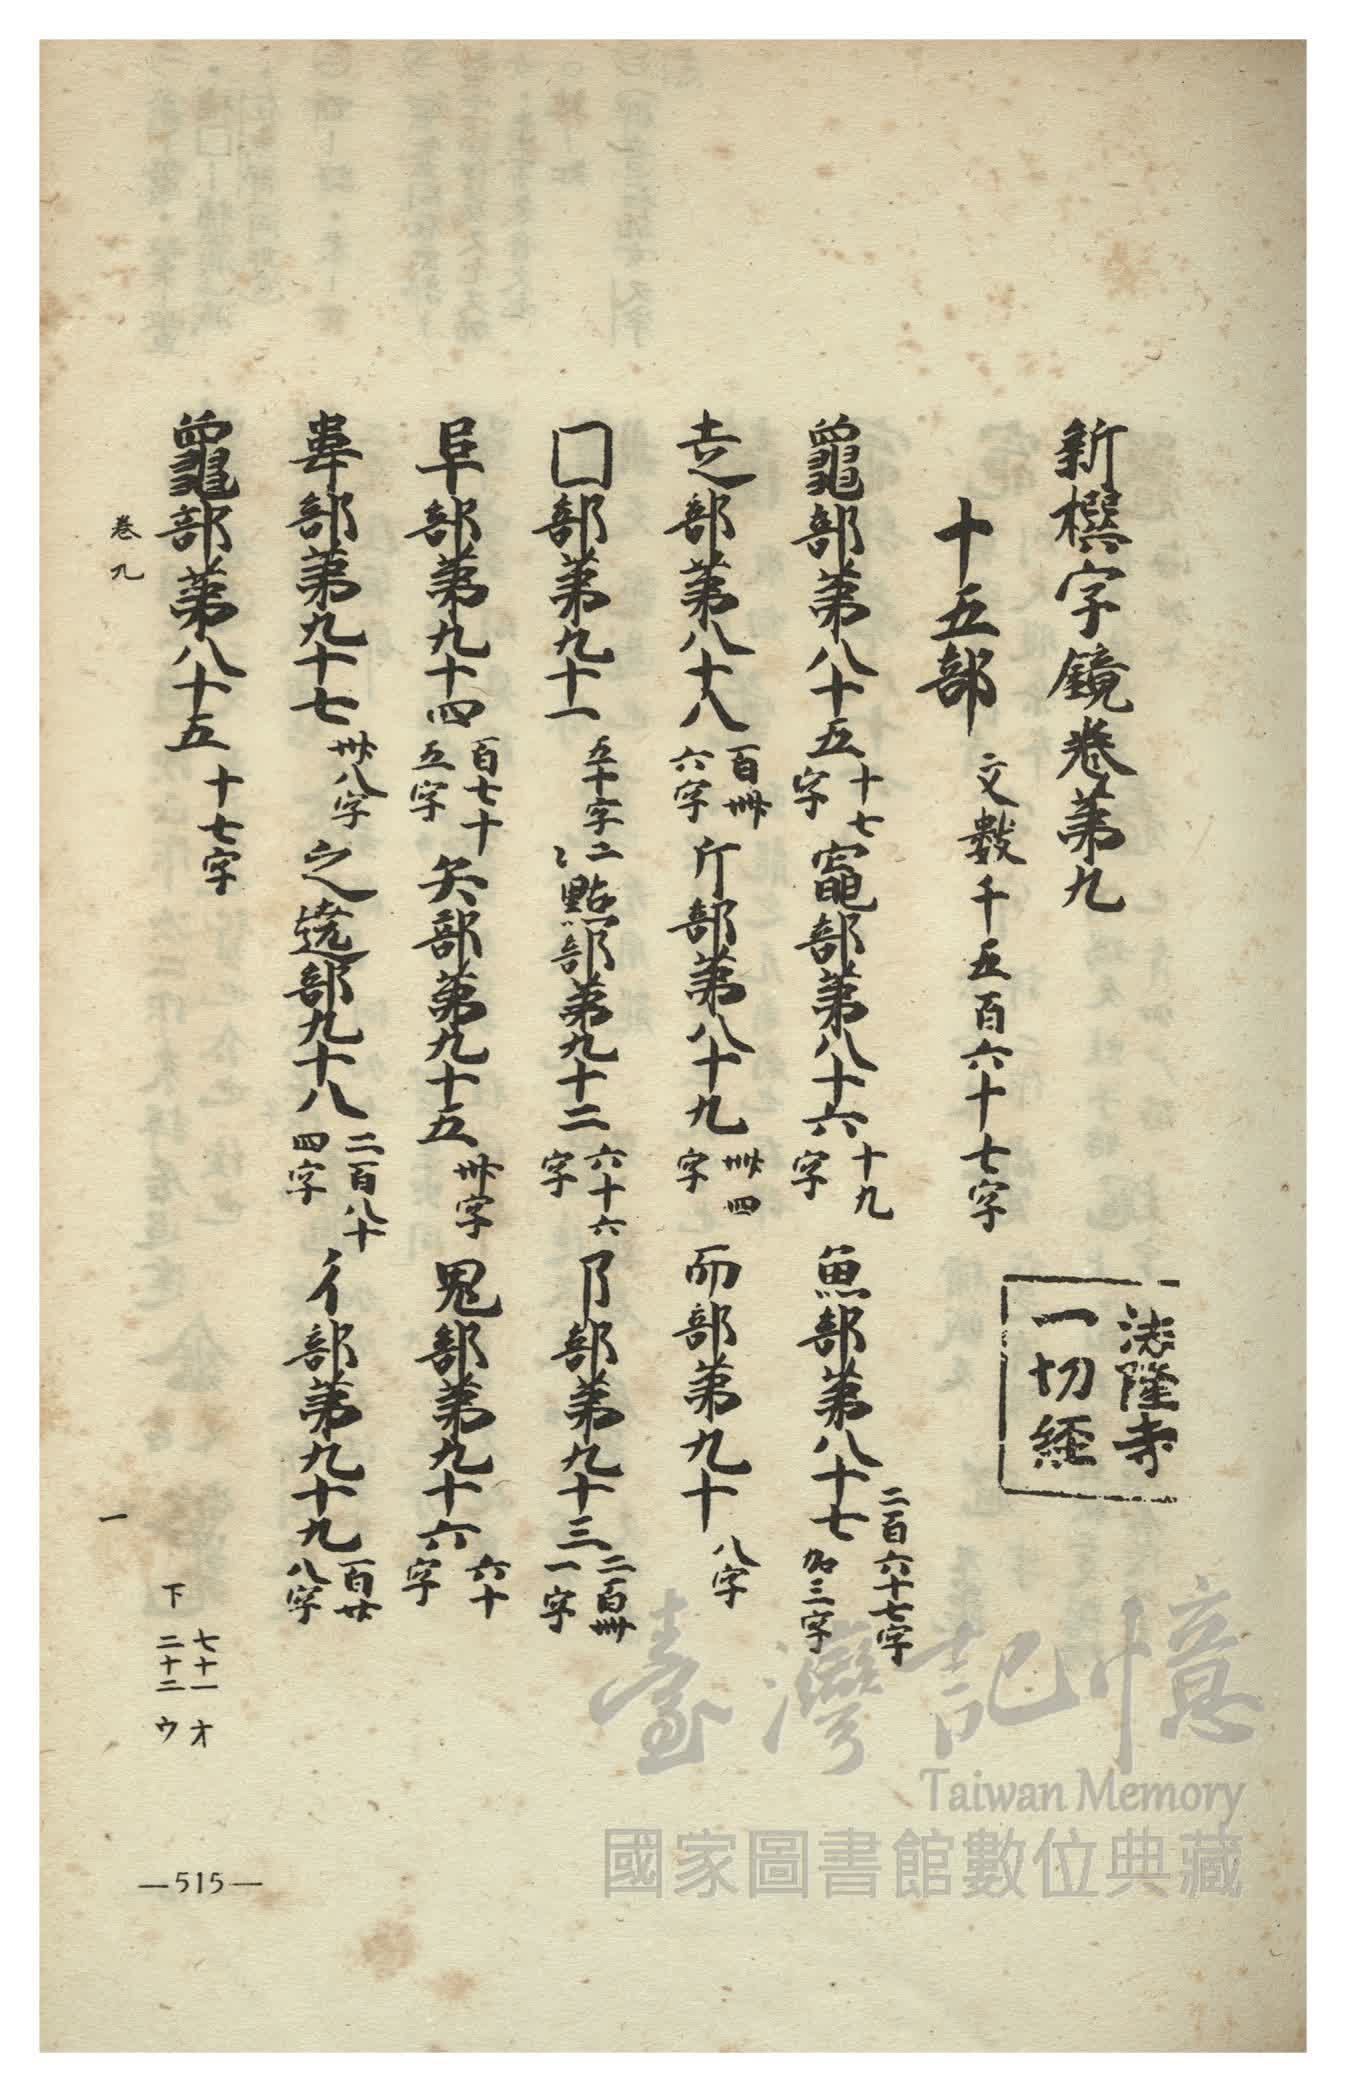 新撰字鏡卷第九
法隆寺
一切經
十五部 文數千五百六十七字
龜部第八十五 十七字 黽部第八十六 十九字 魚部第八十七 二百六十七字 加三字
部第八十八 百卌六字 斤部第八十九 卌四字 而部第九十 八字
囗部第九十一 五十字 二ミ點部第九十二 六十六字 阝部第九十三 二百卌一字
阜部第九十四 百七十五字 矢部第九十五 卌字 鬼部第九十六 六十字
部第九十七 卌八字 之遶部九十八 二百八十四字 彳部第九十九 百廿八字
龜部第八十五 十七字
卷九
一
下
七十一オ
二十二ウ
—515—
臺灣記憶
Taiwan Memory
國家圖書館數位典藏